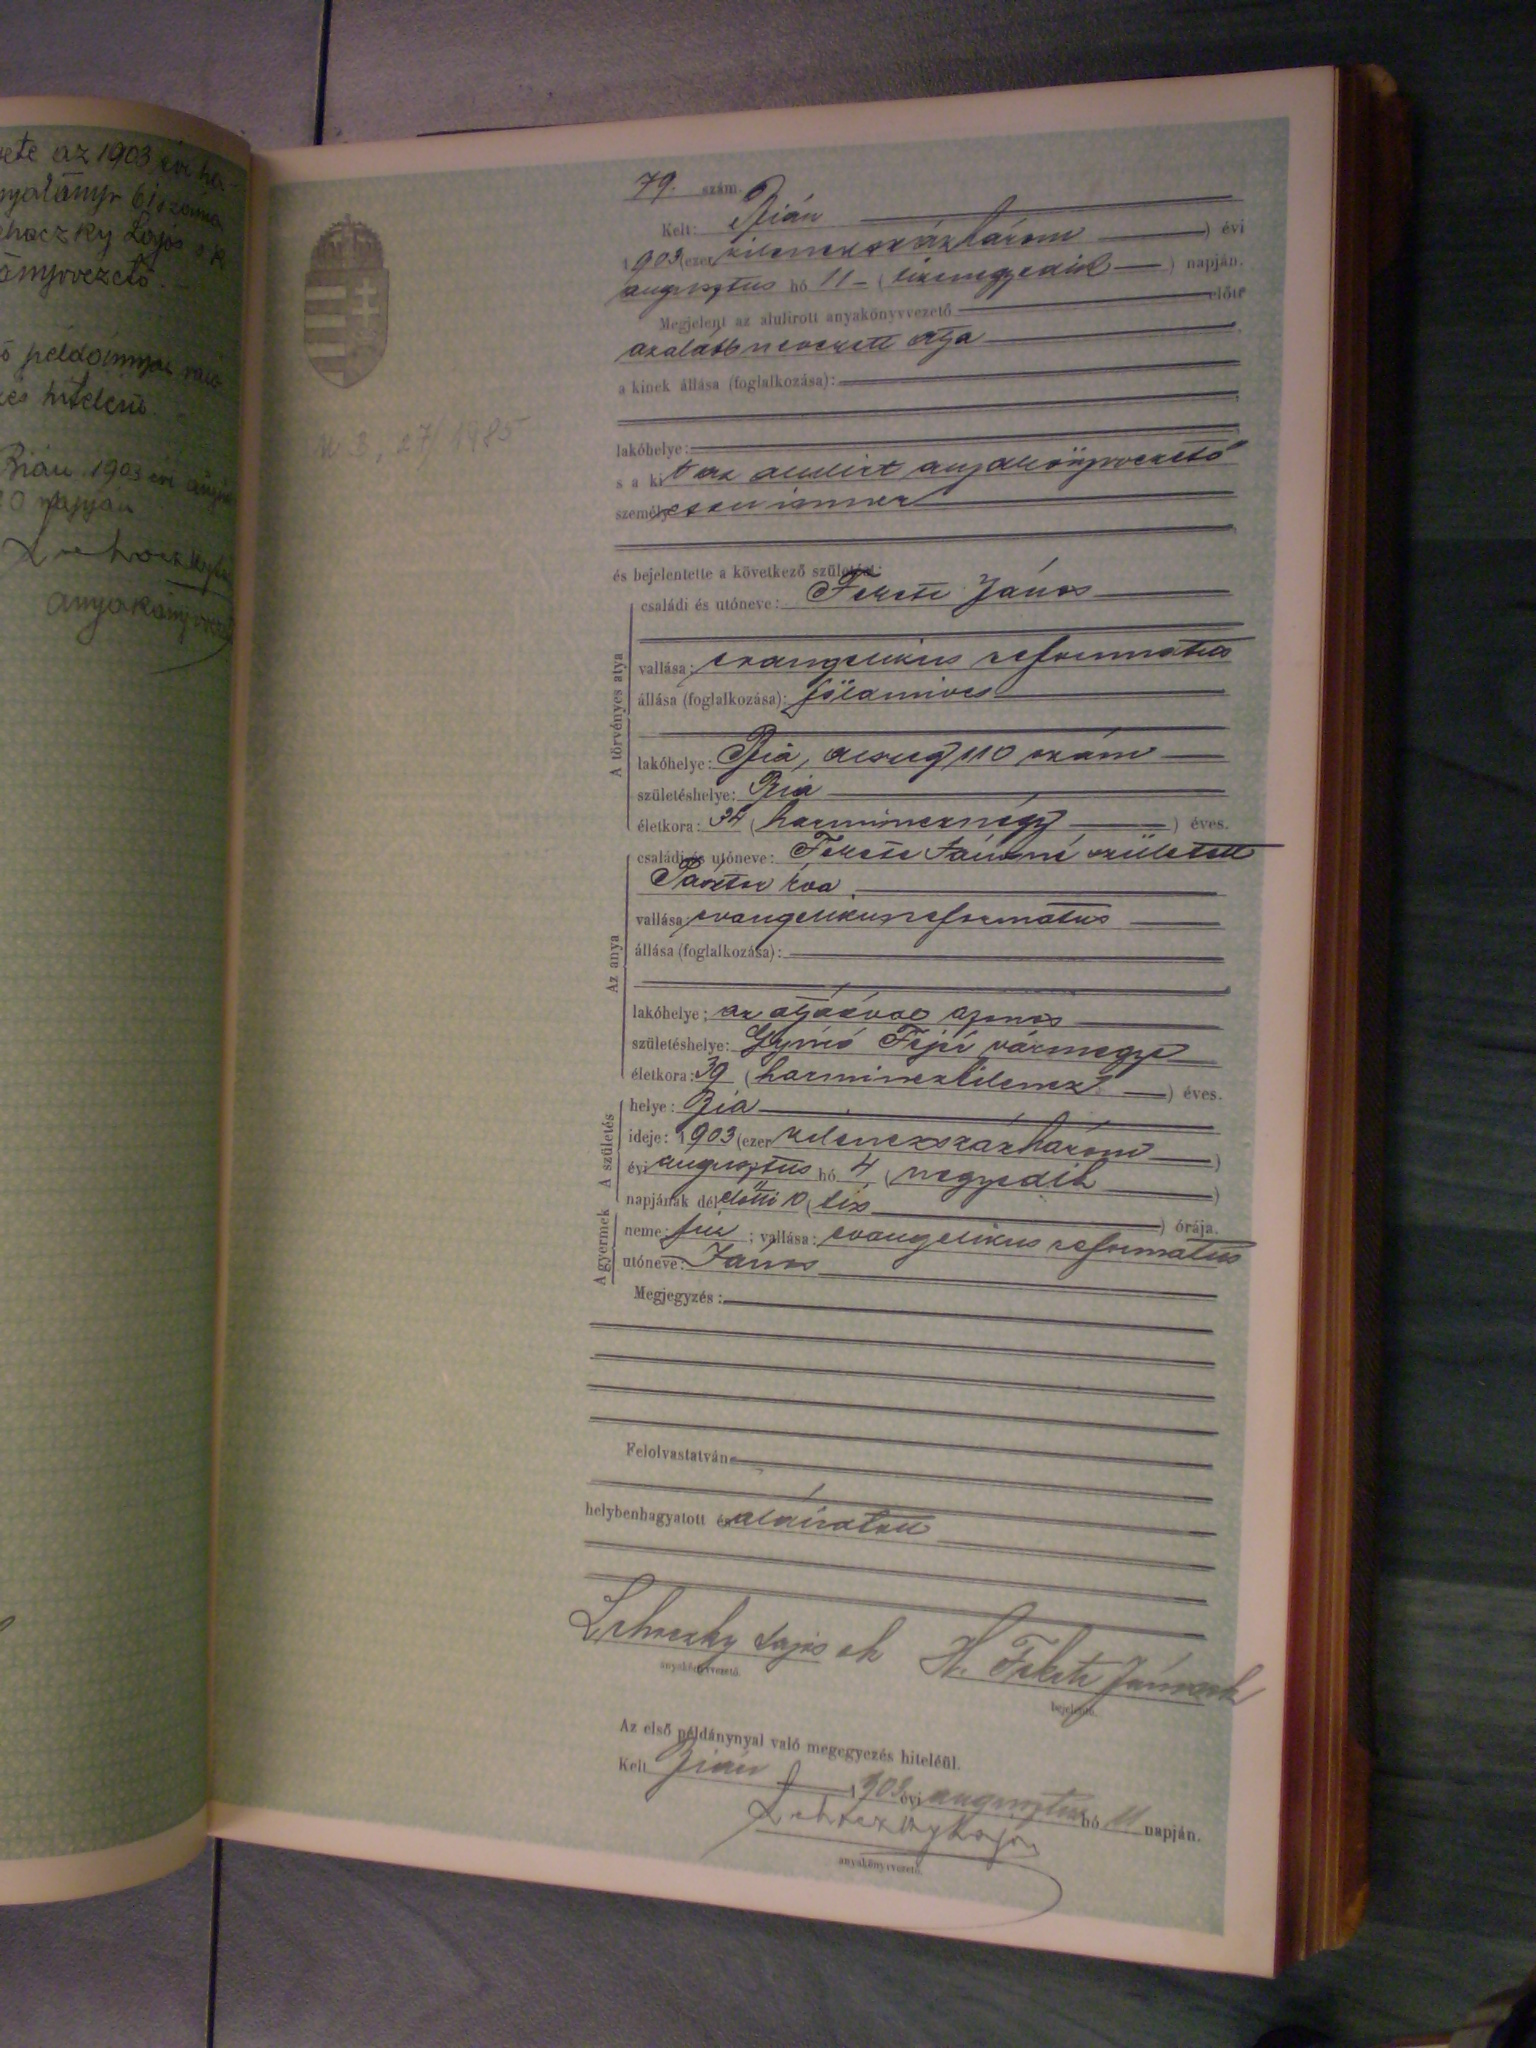 ete az 1903 évi
61 száma
Lajos s.k.
könyvvezető.
hiteléül.
Bián 1903 évi
napján
79. szám.
Kelt: Bián
1903 (ezer kilenczszázhárom) évi
augusztus hó 11 – (tizenegyedik) napján.
Megjelent az alulirott anyakönyvvezető előtt
az alább nevezett atya
a kinek állása (foglalkozása):
lakóhelye:
s a kit az alulirt anyakönyvvezető
személyesen ismer
és bejelentette a következő születést:
A törvényes atya
családi és utóneve: Fekete János
vallása: evangelikus reformatus
állása (foglalkozása): földmives
lakóhelye: Bia, alszeg 110 szám
születéshelye: Bia
életkora: 34 (harmincznégy) éves.
Az anya
családi és utóneve: Fekete Jánosné született
Pásztor Éva
vallása: evangelikus reformatus
állása (foglalkozása):
lakóhelye: az atyáéval azonos
születéshelye: Gyúró Fejér vármegye
életkora: 39 (harminczkilencz) éves.
A születés
helye: Bia
ideje: 1903 (ezer kilenczszázhárom)
évi augusztus hó 4 (negyedik)
napjának délelőtti 10 (tíz) órája.
A gyermek
neme: fiú; vallása: evangelikus reformatus
utóneve: János
Megjegyzés:
Felolvastatván
helybenhagyatott és aláiratott
Lehoczky Lajos sk H. Fekete János sk
anyakönyvvezető. bejelentő.
Az első példánynyal való megegyezés hiteléül.
Kelt Bián 1903 évi augusztus hó 11 napján.
Lehoczky Lajos
anyakönyvvezető.